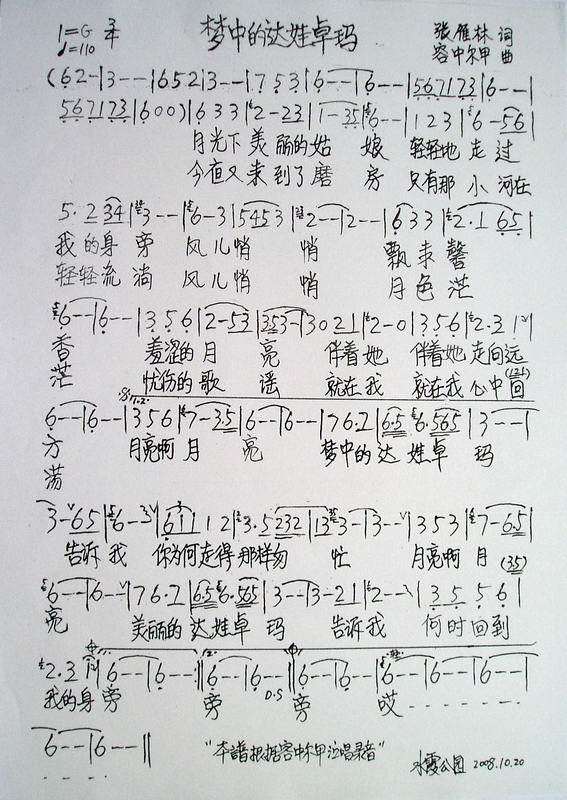 1=G 3/4 梦中的达娃卓玛 张雁林 词
♩=110 容中尔甲 曲
(6 2 - | 3 - - | 1 6 5 2 | 3 - - | 1 7 5 3 | 6 - - | 6 - - | 5 6 7 1 7 3 | 6 - - |
5 6 7 1 7 3 | 6 0 0 ) | 6 3 3 | 2 - 2 3 | 1 - 3 5 | 6 - - | 1 2 3 | 6 - 5 6 |
月光下 美 丽的 姑 娘 轻轻地 走 过
今夜又 来 到了 磨 房 只有那 小 河在
5 · 2 3 4 | 3 - - | 6 - 3 | 5 4 5 3 | 2 - - | 2 - - | 6 3 3 | 2 · 1 6 5 |
我 的身 旁 风 儿 悄 悄 飘 来 馨
轻轻流 淌 风 儿 悄 悄 月 色 茫
6 - - | 6 - - | 3 5 6 | 2 - 5 3 | 3 5 3 - | 3 0 2 1 | 2 - 0 | 3 5 6 | 2 · 3 1 2 |
香 羞涩的 月 亮 伴着 她 伴着她 走向远
茫 忧伤的 歌 谣 就在 我 就在我 心中 回
6 - - | 6 - - | 3 5 6 | 7 - 3 5 | 6 - - | 6 - - | 7 6 · 2 | 6 5 6 · 5 6 5 | 3 - - |
方 月亮啊 月 亮 梦中的 达 娃 卓 玛
荡
3 - 6 5 | 6 - 3 | 6 1 1 2 | 3 · 5 2 3 2 | 1 3 3 - | 3 - - | 3 5 3 | 7 - 6 5 |
告诉 我 你为何走得 那样匆 忙 月亮啊 月 (35)
6 - - | 6 - - | 7 6 · 2 | 6 5 6 · 5 6 5 | 3 - - | 3 - 2 1 | 2 - - | 3 5 5 6 |
亮 美丽的 达娃卓 玛 告诉 我 何时回到
2 · 3 1 2 | 6 - - | 6 - - | 6 - - | 6 - - D.S | 6 - - | 6 - - | 6 - - | 6 - - | 6 - - |
我的身 旁 旁 旁 哎 - - - - - - -
6 - - | 6 - - ‖ "本譜根据容中尔甲演唱录音" 水霞公园 2008.10.20
- - - -